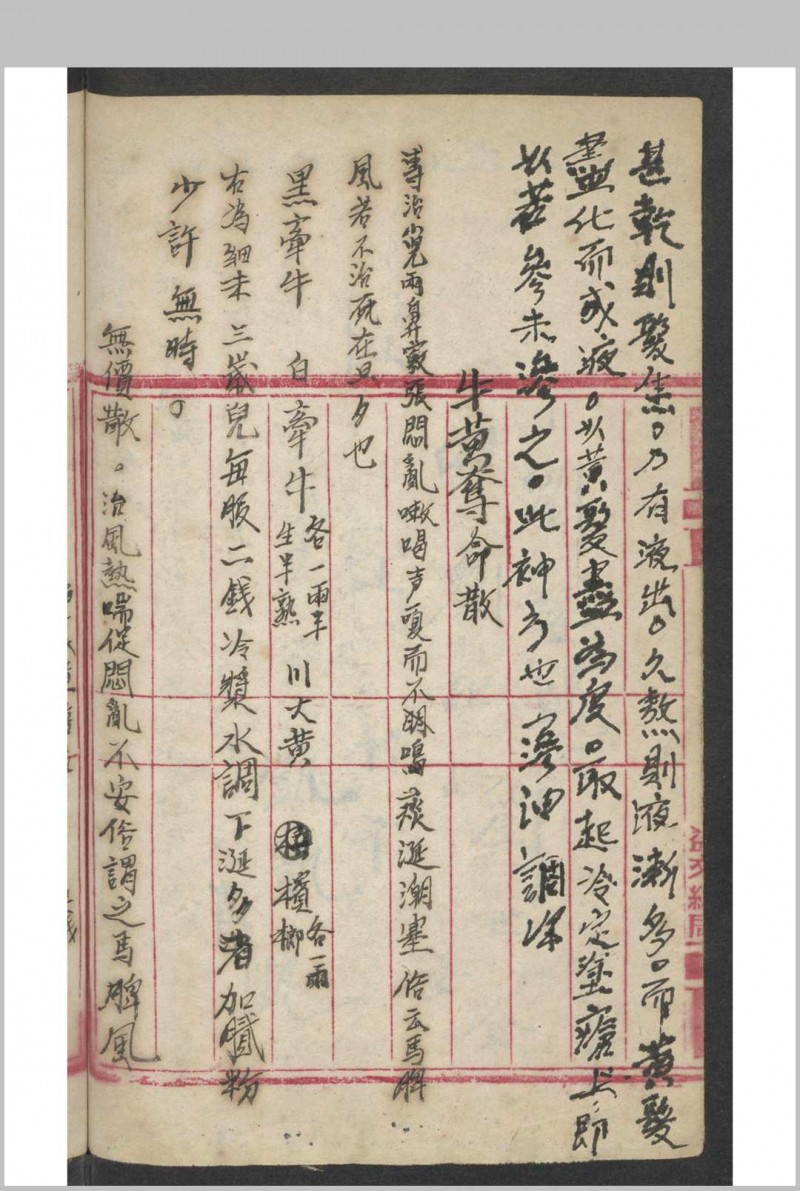 甚乾則髮焦。乃有液出。久熬則液漸多。而黃髮
盡化而成液。以黃髮盡為度。取起冷定塗瘡上、即
以苦參末滲之。此神方也 滲油調洋
牛黃奪命散
專治小兒兩鼻竅張悶亂嗽喝声嗄而不鳴痰涎潮塞俗云馬脾
風若不治死在旦夕也
黑牽牛 白牽牛 各一兩半生半熟 川大黃 檳榔 各一兩
右為細末三歲兒每服二錢冷漿水調下涎多者加膩粉
少許無時。
無價散。治風熱喘促悶亂不安俗謂之馬脾風